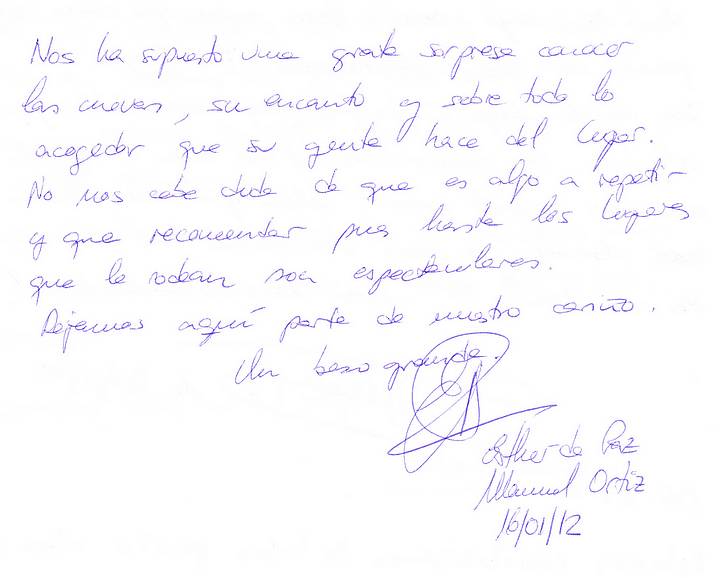 Nos ha supuesto una grata sorpresa conocer
las cuevas, su encanto y sobre todo lo
acogedor que su gente hace del lugar.
No nos cabe duda de que es algo a repetir
y que recomendar pues hasta los lugares
que le rodean son espectaculares.
Dejamos aquí parte de nuestro cariño.
Un beso grande.
Esther de Paz
Manuel Ortiz
16/01/12